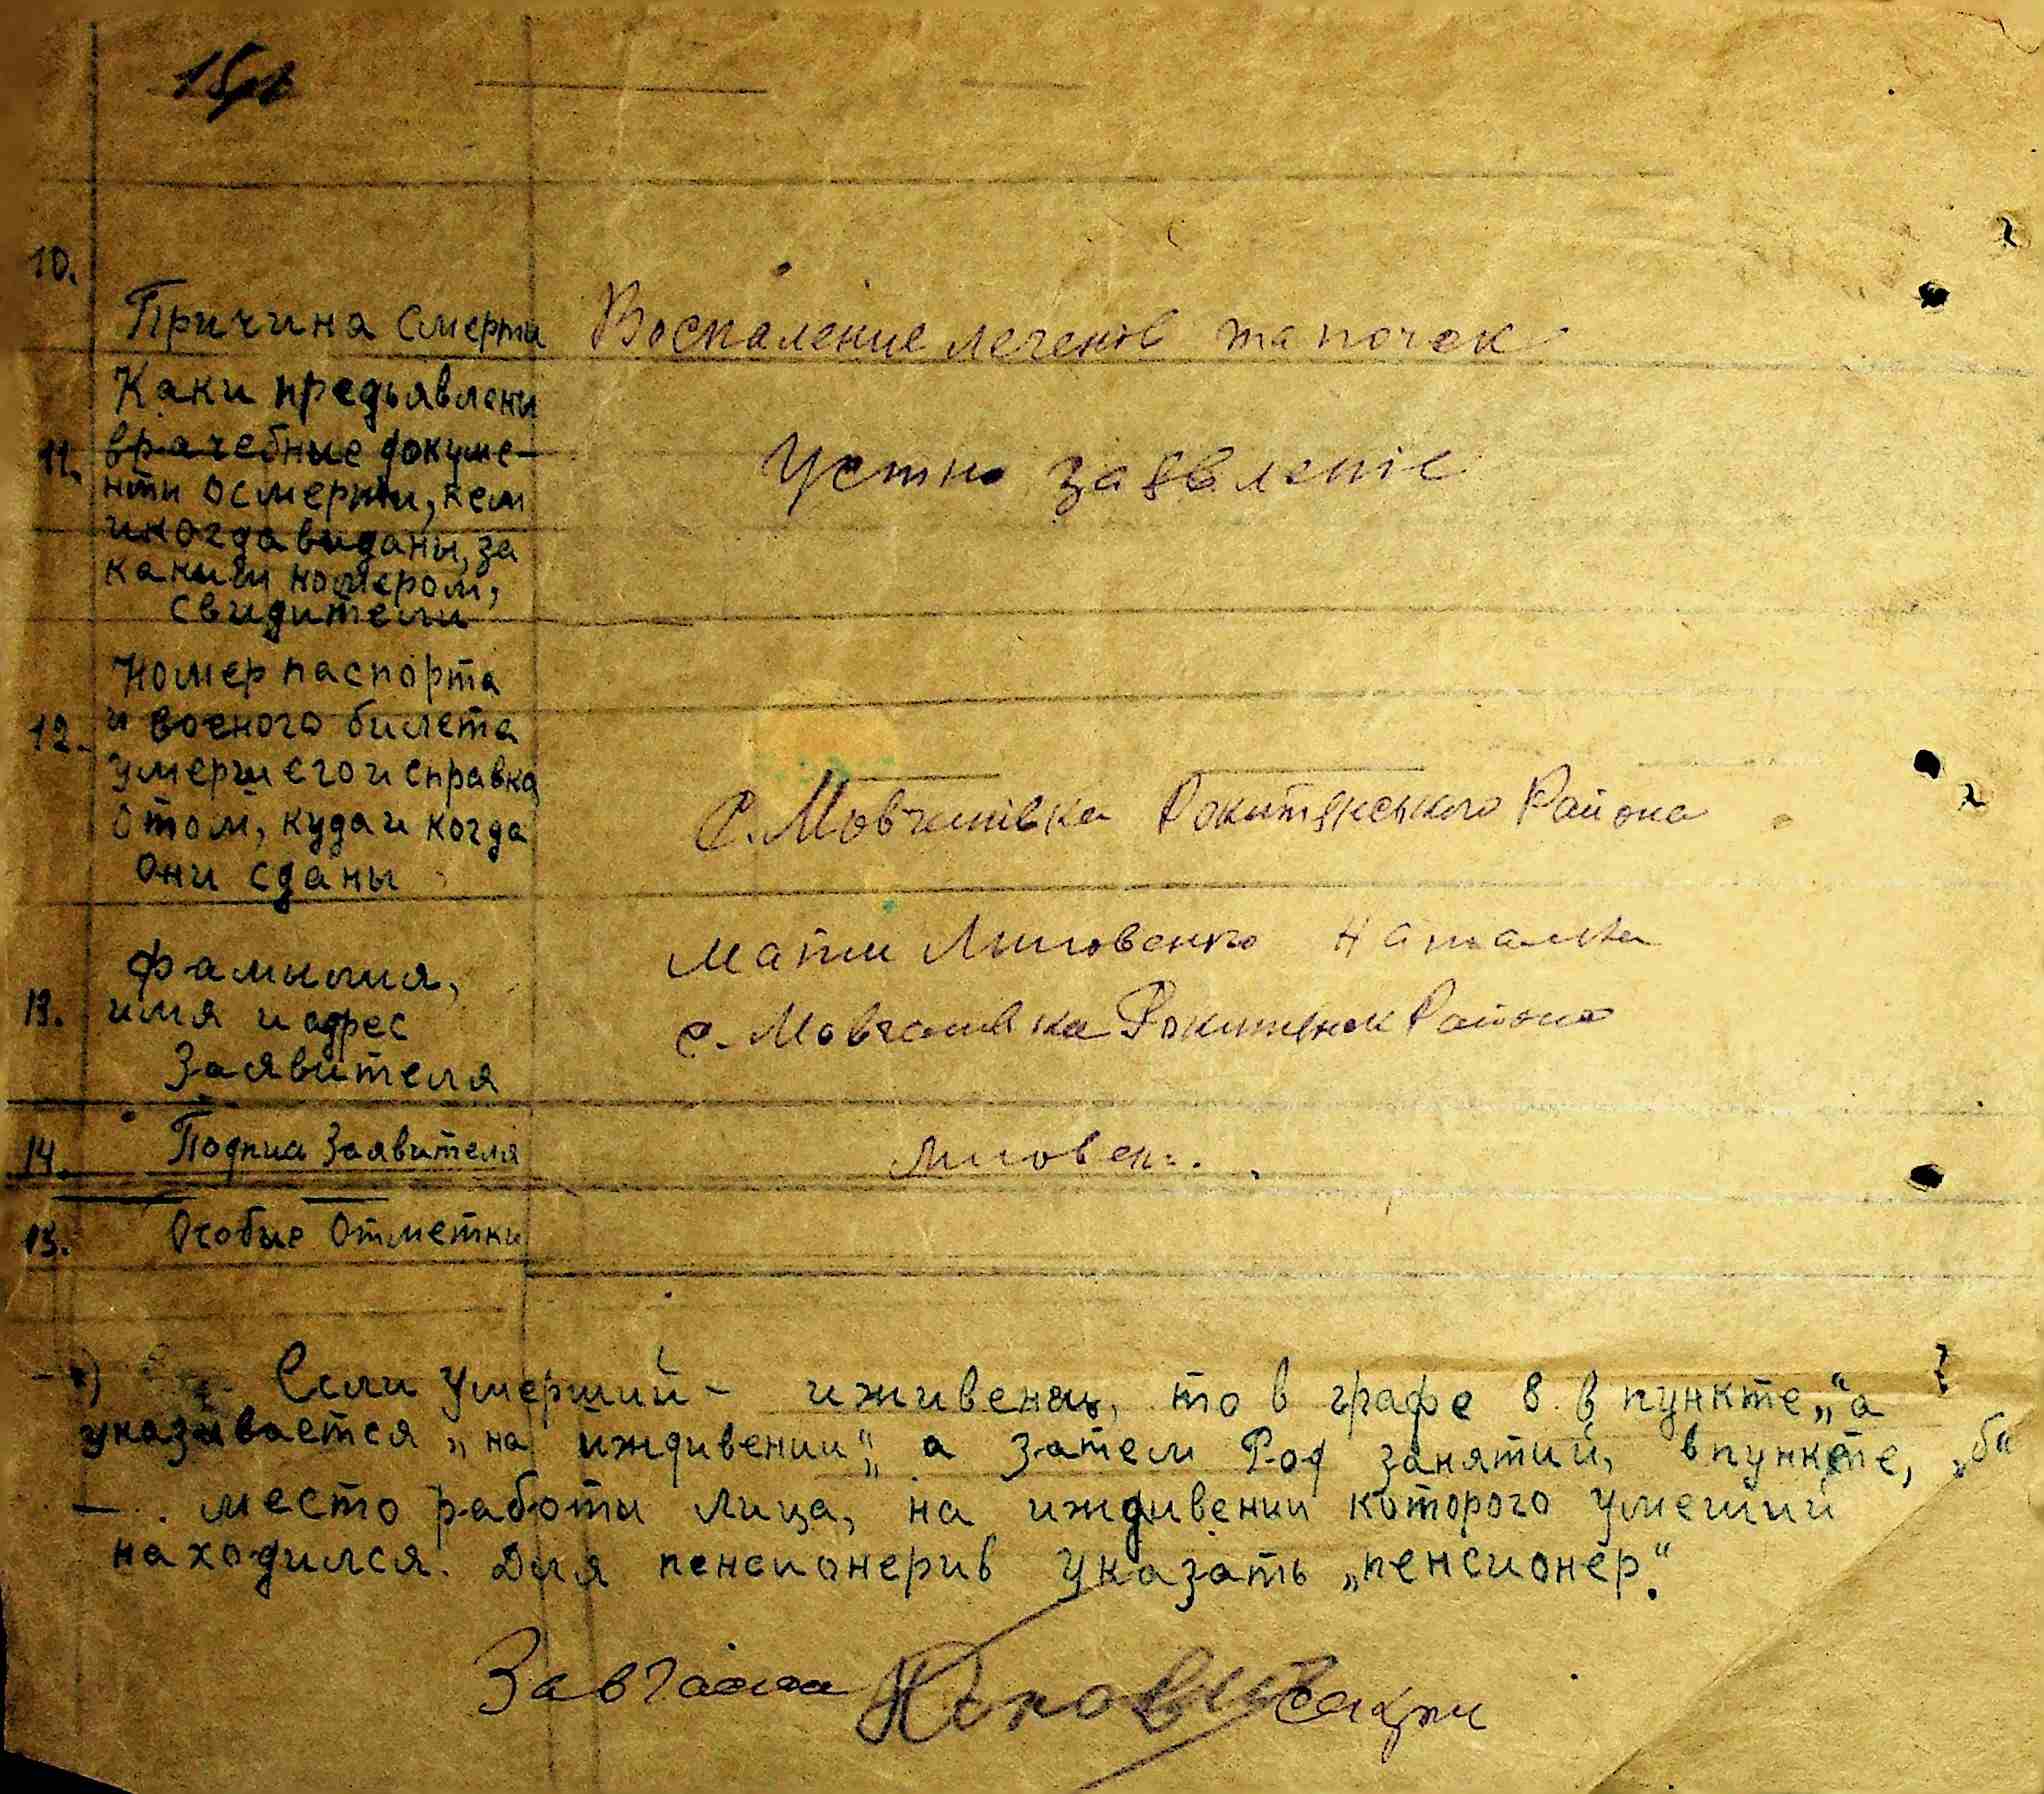 10.
Причина смерти Воспаление легенів та почек
Каки предьявлени
11. врачебные докуме-
нти осмерти, кем
икогда виданы, за
каким номером,
свидители
Устно заявленіе
Номер паспорта
12. и военого билета
умершегои справка
отом, куда и когда
они сданы
с. Мовчанівка Рокитянського Района
Фамилия,
13. имя и адрес
Заявителя
Мати Литовенко Наталка
с. Мовчанівка Рокитянск Района
14. Подпис Заявителя
15. Особые Отметки
Если умерший - иживенец, то в графе 8 в пункте „а“
указывается „на иждивении“, а затем Род занятий, в пункте, „б“
— место работи лица, на иждивении которого умеший
находился. Для пенсионерив указать „пенсионер“.